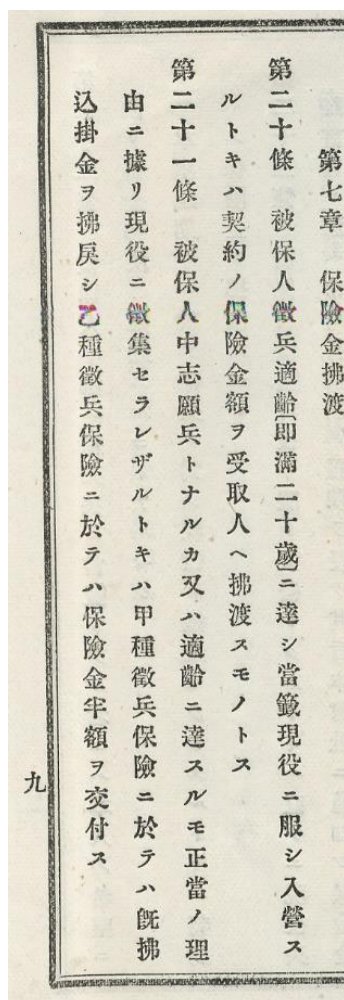 第七章　保險金拂渡
第二十條　被保人徵兵適齡〔即滿二十歲〕ニ達シ當籤現役ニ服シ入營ス
ルトキハ契約ノ保險金額ヲ受取人ヘ拂渡スモノトス
第二十一條　被保人中志願兵トナルカ又ハ適齡ニ達スルモ正當ノ理
由ニ據リ現役ニ徵集セラレザルトキハ甲種徵兵保險ニ於テハ旣拂
込掛金ヲ拂戾シ乙種徵兵保險ニ於テハ保險金半額ヲ交付ス
九